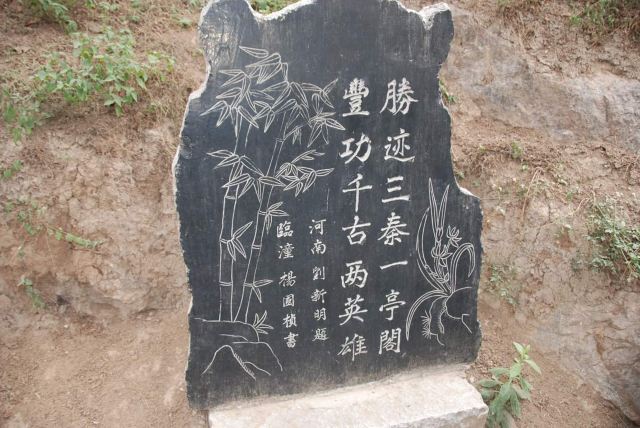 勝迹三秦一亭閣
豐功千古两英雄
河南劉新明題
臨潼楊國楨書